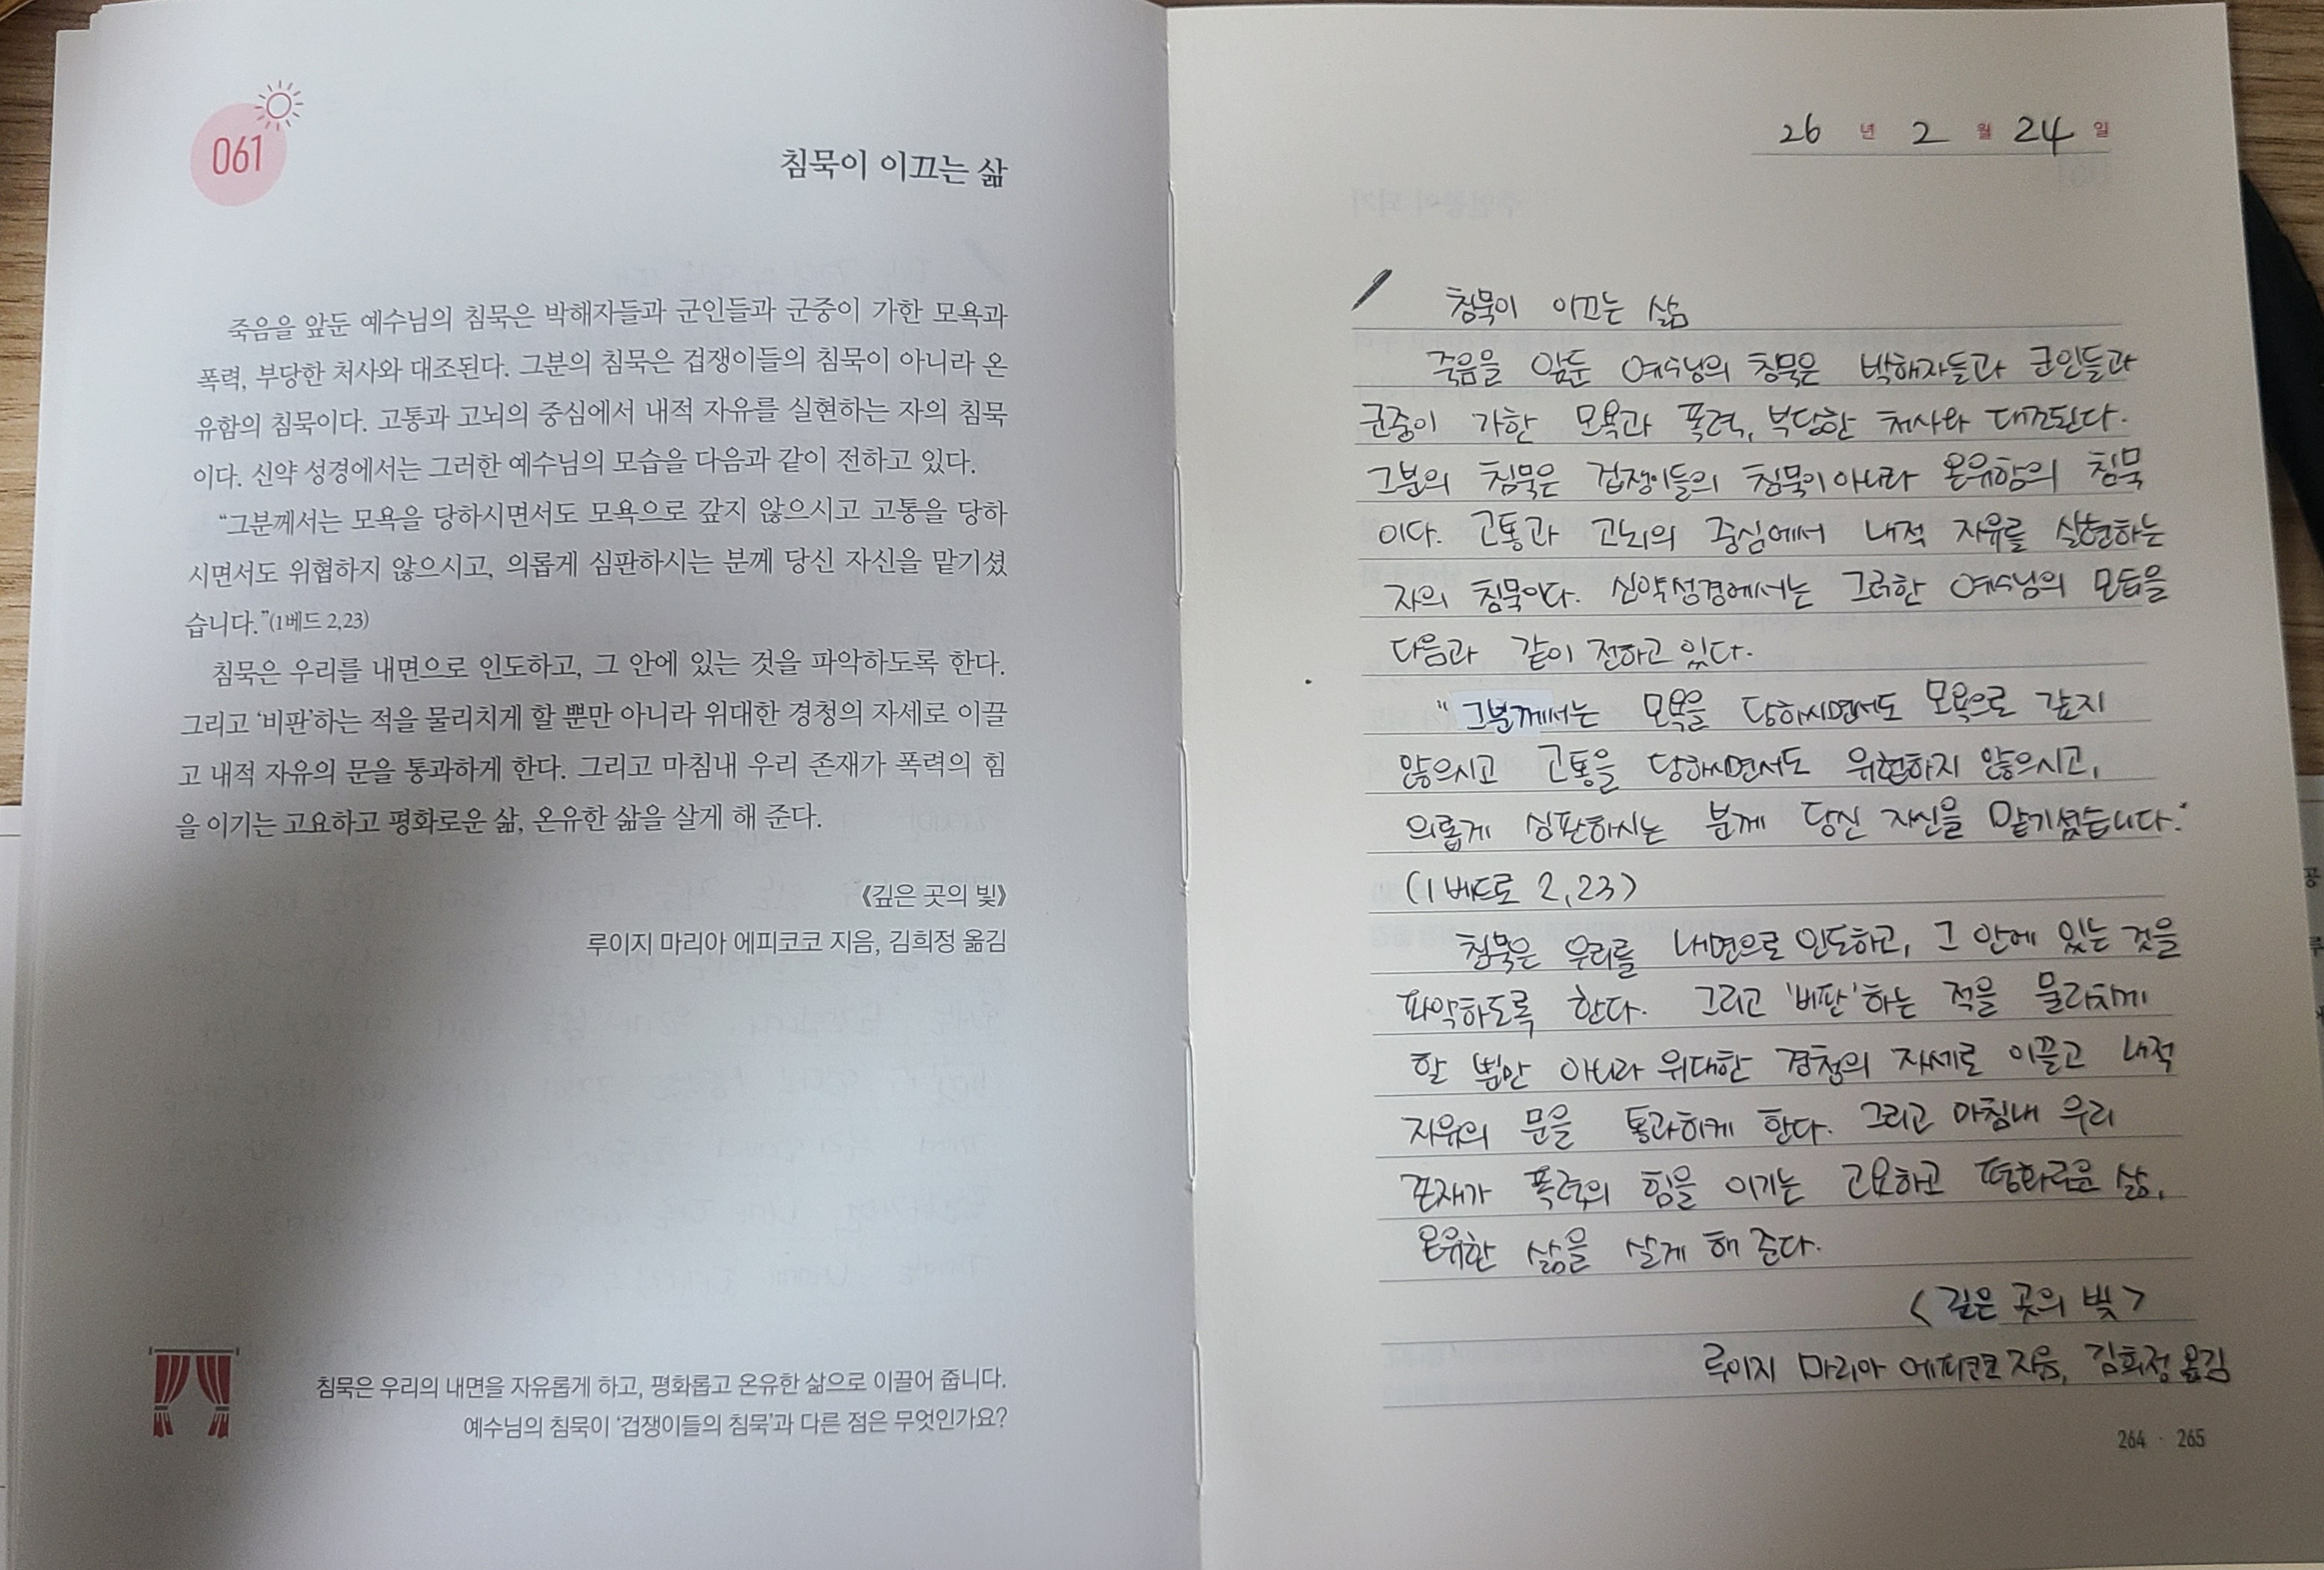 061
침묵이 이끄는 삶
죽음을 앞둔 예수님의 침묵은 박해자들과 군인들과 군중이 가한 모욕과
폭력, 부당한 처사와 대조된다. 그분의 침묵은 겁쟁이들의 침묵이 아니라 온
유함의 침묵이다. 고통과 고뇌의 중심에서 내적 자유를 실현하는 자의 침묵
이다. 신약 성경에서는 그러한 예수님의 모습을 다음과 같이 전하고 있다.
“그분께서는 모욕을 당하시면서도 모욕으로 갚지 않으시고 고통을 당하
시면서도 위협하지 않으시고, 의롭게 심판하시는 분께 당신 자신을 맡기셨
습니다.”(1베드 2,23)
침묵은 우리를 내면으로 인도하고, 그 안에 있는 것을 파악하도록 한다.
그리고 ‘비판’하는 적을 물리치게 할 뿐만 아니라 위대한 경청의 자세로 이끌
고 내적 자유의 문을 통과하게 한다. 그리고 마침내 우리 존재가 폭력의 힘
을 이기는 고요하고 평화로운 삶, 온유한 삶을 살게 해 준다.
《깊은 곳의 빛》
루이지 마리아 에피코코 지음, 김희정 옮김
침묵은 우리의 내면을 자유롭게 하고, 평화롭고 온유한 삶으로 이끌어 줍니다.
예수님의 침묵이 ‘겁쟁이들의 침묵’과 다른 점은 무엇인가요?
26 년 2 월 24 일
침묵이 이끄는 삶
죽음을 앞둔 예수님의 침묵은 박해자들과 군인들과
군중이 가한 모욕과 폭력, 부당한 처사와 대조된다.
그분의 침묵은 겁쟁이들의 침묵이 아니라 온유함의 침묵
이다. 고통과 고뇌의 중심에서 내적 자유를 실현하는
자의 침묵이다. 신약성경에서는 그러한 예수님의 모습을
다음과 같이 전하고 있다.
“그분께서는 모욕을 당하시면서도 모욕으로 갚지
않으시고 고통을 당하시면서도 위협하지 않으시고,
의롭게 심판하시는 분께 당신 자신을 맡기셨습니다.”
(1 베드로 2,23)
침묵은 우리를 내면으로 인도하고, 그 안에 있는 것을
파악하도록 한다. 그리고 '비판'하는 적을 물리치게
할 뿐만 아니라 위대한 경청의 자세로 이끌고 내적
자유의 문을 통과하게 한다. 그리고 마침내 우리
존재가 폭력의 힘을 이기는 고요하고 평화로운 삶,
온유한 삶을 살게 해 준다.
<깊은 곳의 빛>
루이지 마리아 에피코코 지음, 김희정 옮김
264 · 265